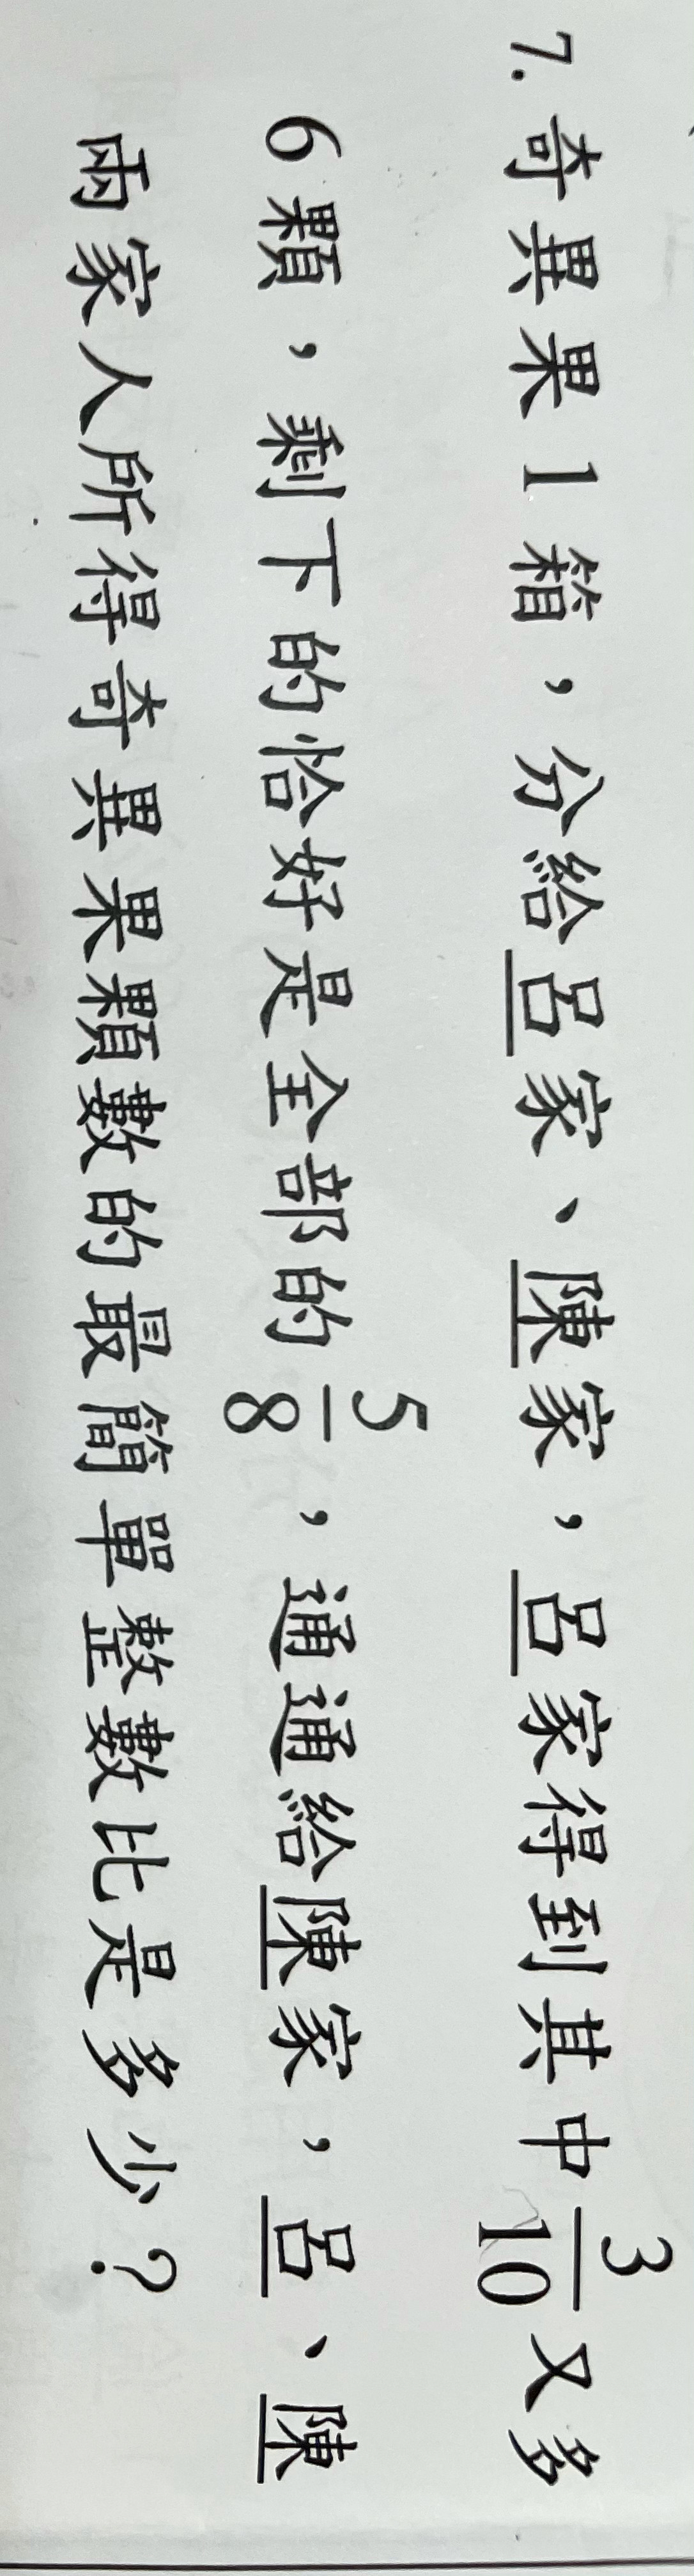 7. 奇異果1箱，分給呂家、陳家，呂家得到其中3/10又多
6顆，剩下的恰好是全部的5/8，通通給陳家，呂、陳
兩家人所得奇異果顆數的最簡單整數比是多少？